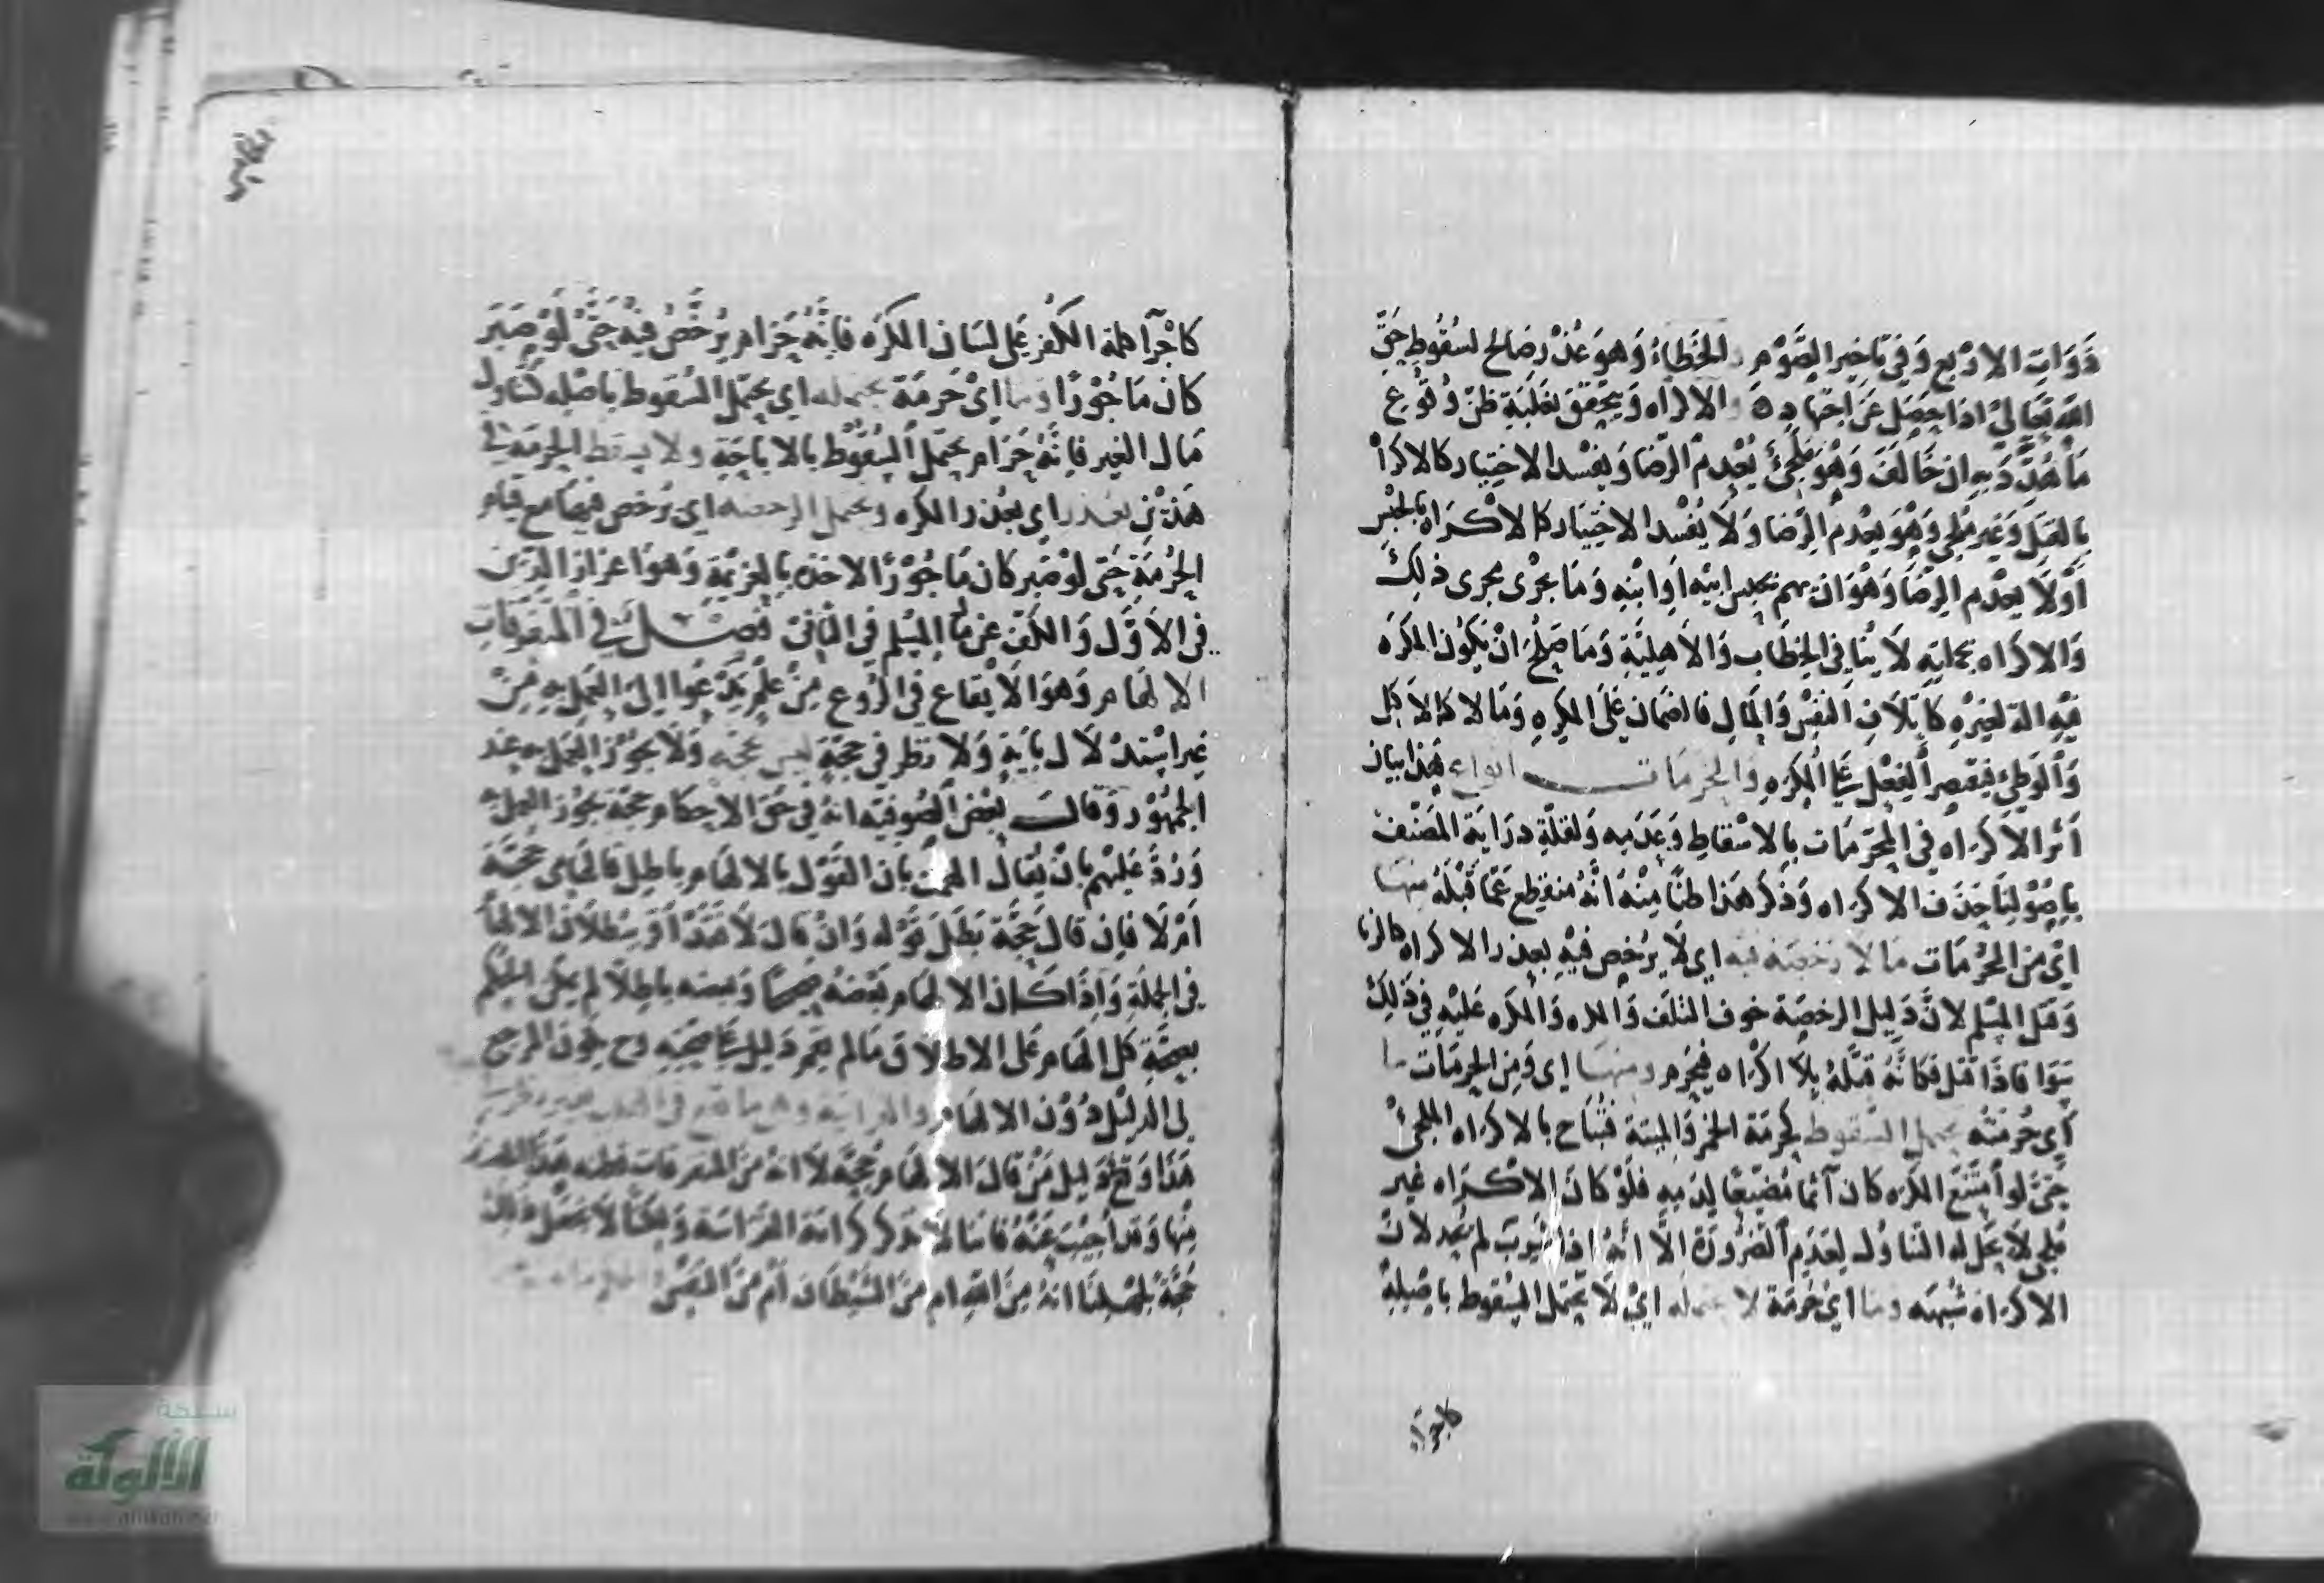 ذَوَاتِ الاربع وَفي تاخير الصَّوْم والخَطاءُ وَهوَ عُذْر صَالح لسُقُوطِ حَقّ
الله تعَالى اذا حصَل عَن اجتهاد والاكراه وَيتحقق بغَلبَةِ ظنّ وُقوع
مَا هُدِّدَ به ان خَالفَ وَهُوَ ملجئ يُعْدم الرّضا وَيفسد الاختيار كالاكراه
بالقتل وَغير ملجي وَهُوَ يعْدم الرّضا وَلَا يُفسد الاختيار كالاكراه بالحبْس
أوْلا يعْدم الرضا وَهْوَ ان يهم بحبس ابيْه اَوابنْهِ وَمَا يجْرى مجرى ذلك
وَالاكراه بجملته لا يُنافي الخطَاب وَالاَهليَّةِ وَمَا صَلحُ انْ يكوُن المكرَه
فيْهِ الة لغيرْهِ كاتلاف النفْس وَالمَال فالضمَان عَلى المكرِه وَمَا لا كالاكل
وَالوطئ فيقصر الفِعْل عَلى المكرَهِ والحرمات انواع هَذا بيان
اثر الاكرَاه في المحرّمَات بالاسْقاطِ وَعَدَمه وَلقلّةِ درَايَة المصَنّف
باصُوْلنَا حذَف الاكراه وَذكرَ هَذا ظنًّا مِنْهُ انَّهُ منقطع عَمّا قَبْلهُ منهَا
اىْ من الحرُمَات مَا لا رخصَة فيه اي لَا يرُخص فيْهِ بعذر الاكراه كالزنا
وَقتل المسْلم لانَّ دَليل الرخصَة خوف التلف وَالمكره وَالمكره عَليْهِ في ذَلِكَ
سَوَا فاذا قتل فكانَّهُ قتلَهُ بلاَ اكْراه فيحْرُم ومنهَا اى وَمِن الحرمَات ما
أي حُرمَتُه يحتمل السّقوط كحُرمَة الخمر وَالميتة فتُبَاح بالاكرَاه الملجئ
حَتىَّ لو امْتَنَعَ المكرَه كان آثما مُضيّعًا لدَمِه فلوْ كانَ الاكرَاه غير
ملجي لا يحل له التناوُل لِعَدَمِ الضرُورَة الَّا انَّهُ اذا شرب لم يحد لانَّ
الاكرَاه شُبهَه وما اىْ حُرمَة لا يحتمله اىْ لَا يَحتمل السّقوط باصْلِهِ
كاجرا
كاجْرآ كلمة الكُفر عَلى لسَان المكرَه فانَّهُ حَرَام يُرَخَّصُ فيْه حَتَّى لَوْ صَبَر
كان مَاجُوْرًا وما اىْ حُرمَة يحتمله اي يحتمل السُّقوط باصْله كتناول
مَال الغير فانَّهُ حَرَام يحتمل السُّقوُط بالاباحَةِ ولا يسقط الحرمَة في
هَذيْن بعذر اي بعُذر المكره ويحتمل الرخصه اي يرخص فيهمَا مع قيام
الحُرْمَةِ حَتى لوْ صَبر كان مَاجُوْرًا لاخذهِ بالعزيْمَةِ وَهوَ اعزاز الدّين
في الاَوَّل وَالكَفّ عن مَال المسْلم في الثانى فصْل في المتفَرقات
الالهَام وَهوَ الايْقاع في الرُوع مِنْ عِلْمٍ يَدْعُوا الى العَمل به مِنْ
غير اسْتدْلَال بآيَةٍ وَلا نظر في حجَّةٍ ليس بحجّة وَلا يجُوْز العَمل به عند
الجُمْهُوْر وَقالَ بَعْضُ الصُوفيه انهُ في حَق الاحكام حجّة يجُوْز العَمل به
وَرُدَّ عَليهْم بانْ يُقالَ القوْل بالالهَام باطِل فالهَامى حجَّة
أمْ لَا فان قالَ حجَّة بَطلَ قوْله وَانْ قالَ لَا فقَدْ أقرّ ببُطلان الالهَام
في الجملَةِ وَاذا كان الالهَام بَعْضهُ صَحيْحًا وَبعضه باطلًا لم يمكن الحكم
بصحَّةِ كل الهَام عَلى الاطلاق مَا لم يقم دَليل عَلى صحَّتهِ وح يكون المرجع
الى الدليْل دُوْنَ الالهَام والفراسَة وهي ما يقع في القلب
هَذا وَقعَ دَليل مَنْ قالَ الالهَام حُجَّة لَا انهُ منَ المتفرقات
مِنْها وَقدْ أجيْبَ عَنْهُ فانا لا نذكر كرامَة الفراسَة وَلكنَّا لا نجعَل ذلك
حُجّةً لجهْلنَا انهُ مِنَ اللهِ ام منَ الشّيْطان أم منَ النفس
شبكة
الألوكة
www.alukah.net